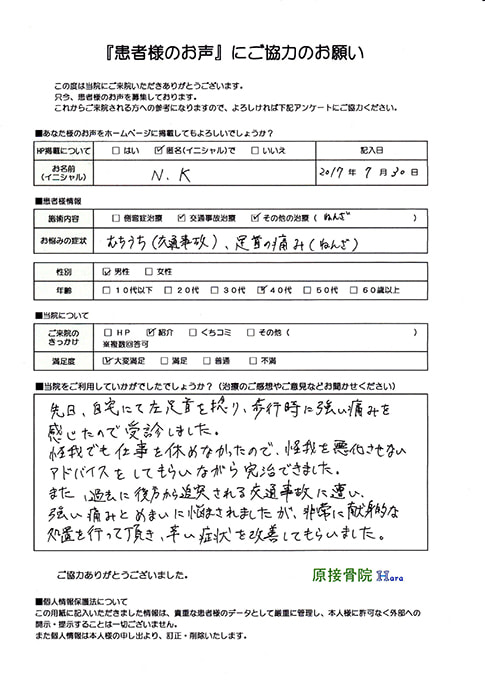 『患者様のお声』にご協力のお願い
この度は当院にご来院いただきありがとうございます。
只今、患者様のお声を募集しております。
これからご来院される方への参考になりますので、よろしければ下記アンケートにご協力ください。
■あなた様のお声をホームページに掲載してもよろしいでしょうか？
HP掲載について □はい ☑匿名(イニシャル)で □いいえ 記入日
お名前
(イニシャル) N.K 2017年7月30日
■患者様情報
施術内容 □側弯症治療 ☑交通事故治療 ☑その他の治療（ねんざ）
お悩みの症状 むちうち(交通事故)、足首の痛み(ねんざ)
性別 ☑男性 □女性
年齢 □10代以下 □20代 □30代 ☑40代 □50代 □60歳以上
■当院について
ご来院の
きっかけ □HP ☑紹介 □くちコミ □その他（ ）
※複数回答可
満足度 ☑大変満足 □満足 □普通 □不満
■当院をご利用していかがでしたでしょうか？（治療のご感想やご意見などお聞かせください）
先日、自宅にて左足首を捻り、歩行時に強い痛みを
感じたので受診しました。
怪我でも仕事を休めなかったので、怪我を悪化させない
アドバイスをしてもらいながら完治できました。
また、過去に後方から追突される交通事故に遭い、
強い痛みとめまいに悩まされましたが、非常に献身的な
処置を行って頂き、辛い症状を改善してもらいました。
ご協力ありがとうございました。
原接骨院 Hara
■個人情報保護法について
この用紙に記入いただきました情報は、貴重な患者様のデータとして厳重に管理し、本人様に許可なく外部への
開示・提示することは一切ございません。
また個人情報は本人様の申し出より、訂正・削除いたします。